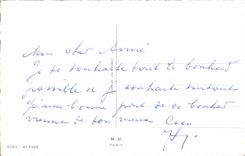 Mon cher Aimé
Je te souhaite tout le bonheur
possible et je souhaite surtout
qu'une bonne part de ce bonheur
vienne de ton vieux Coco
M. D.
PARIS